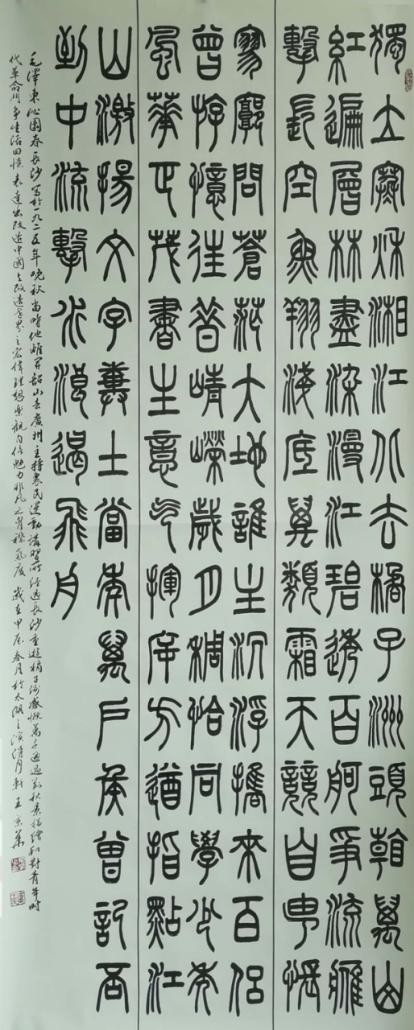 獨立寒秋湘江北去橘子洲頭看萬山
紅遍層林盡染漫江碧透百舸爭流鷹
擊長空魚翔淺底萬類霜天競自由悵
寥廓問蒼茫大地誰主沉浮攜來百侶
曾游憶往昔崢嶸歲月稠恰同學少年
風華正茂書生意氣揮斥方遒指點江
山激揚文字糞土當年萬戶侯曾記否
到中流擊水浪遏飛舟
毛澤東沁園春長沙寫於一九二五年晚秋當時他離開韶山去廣州主持農民運動講習所經過長沙重遊橘子洲感慨萬千通過對秋景描繪和對青年時
代革命鬥爭生活回憶表達出改造中國與改造世界之宏偉理想樂觀自信魅力非凡之胸襟氣度 歲在甲辰春月於太湖之濱月軒王京